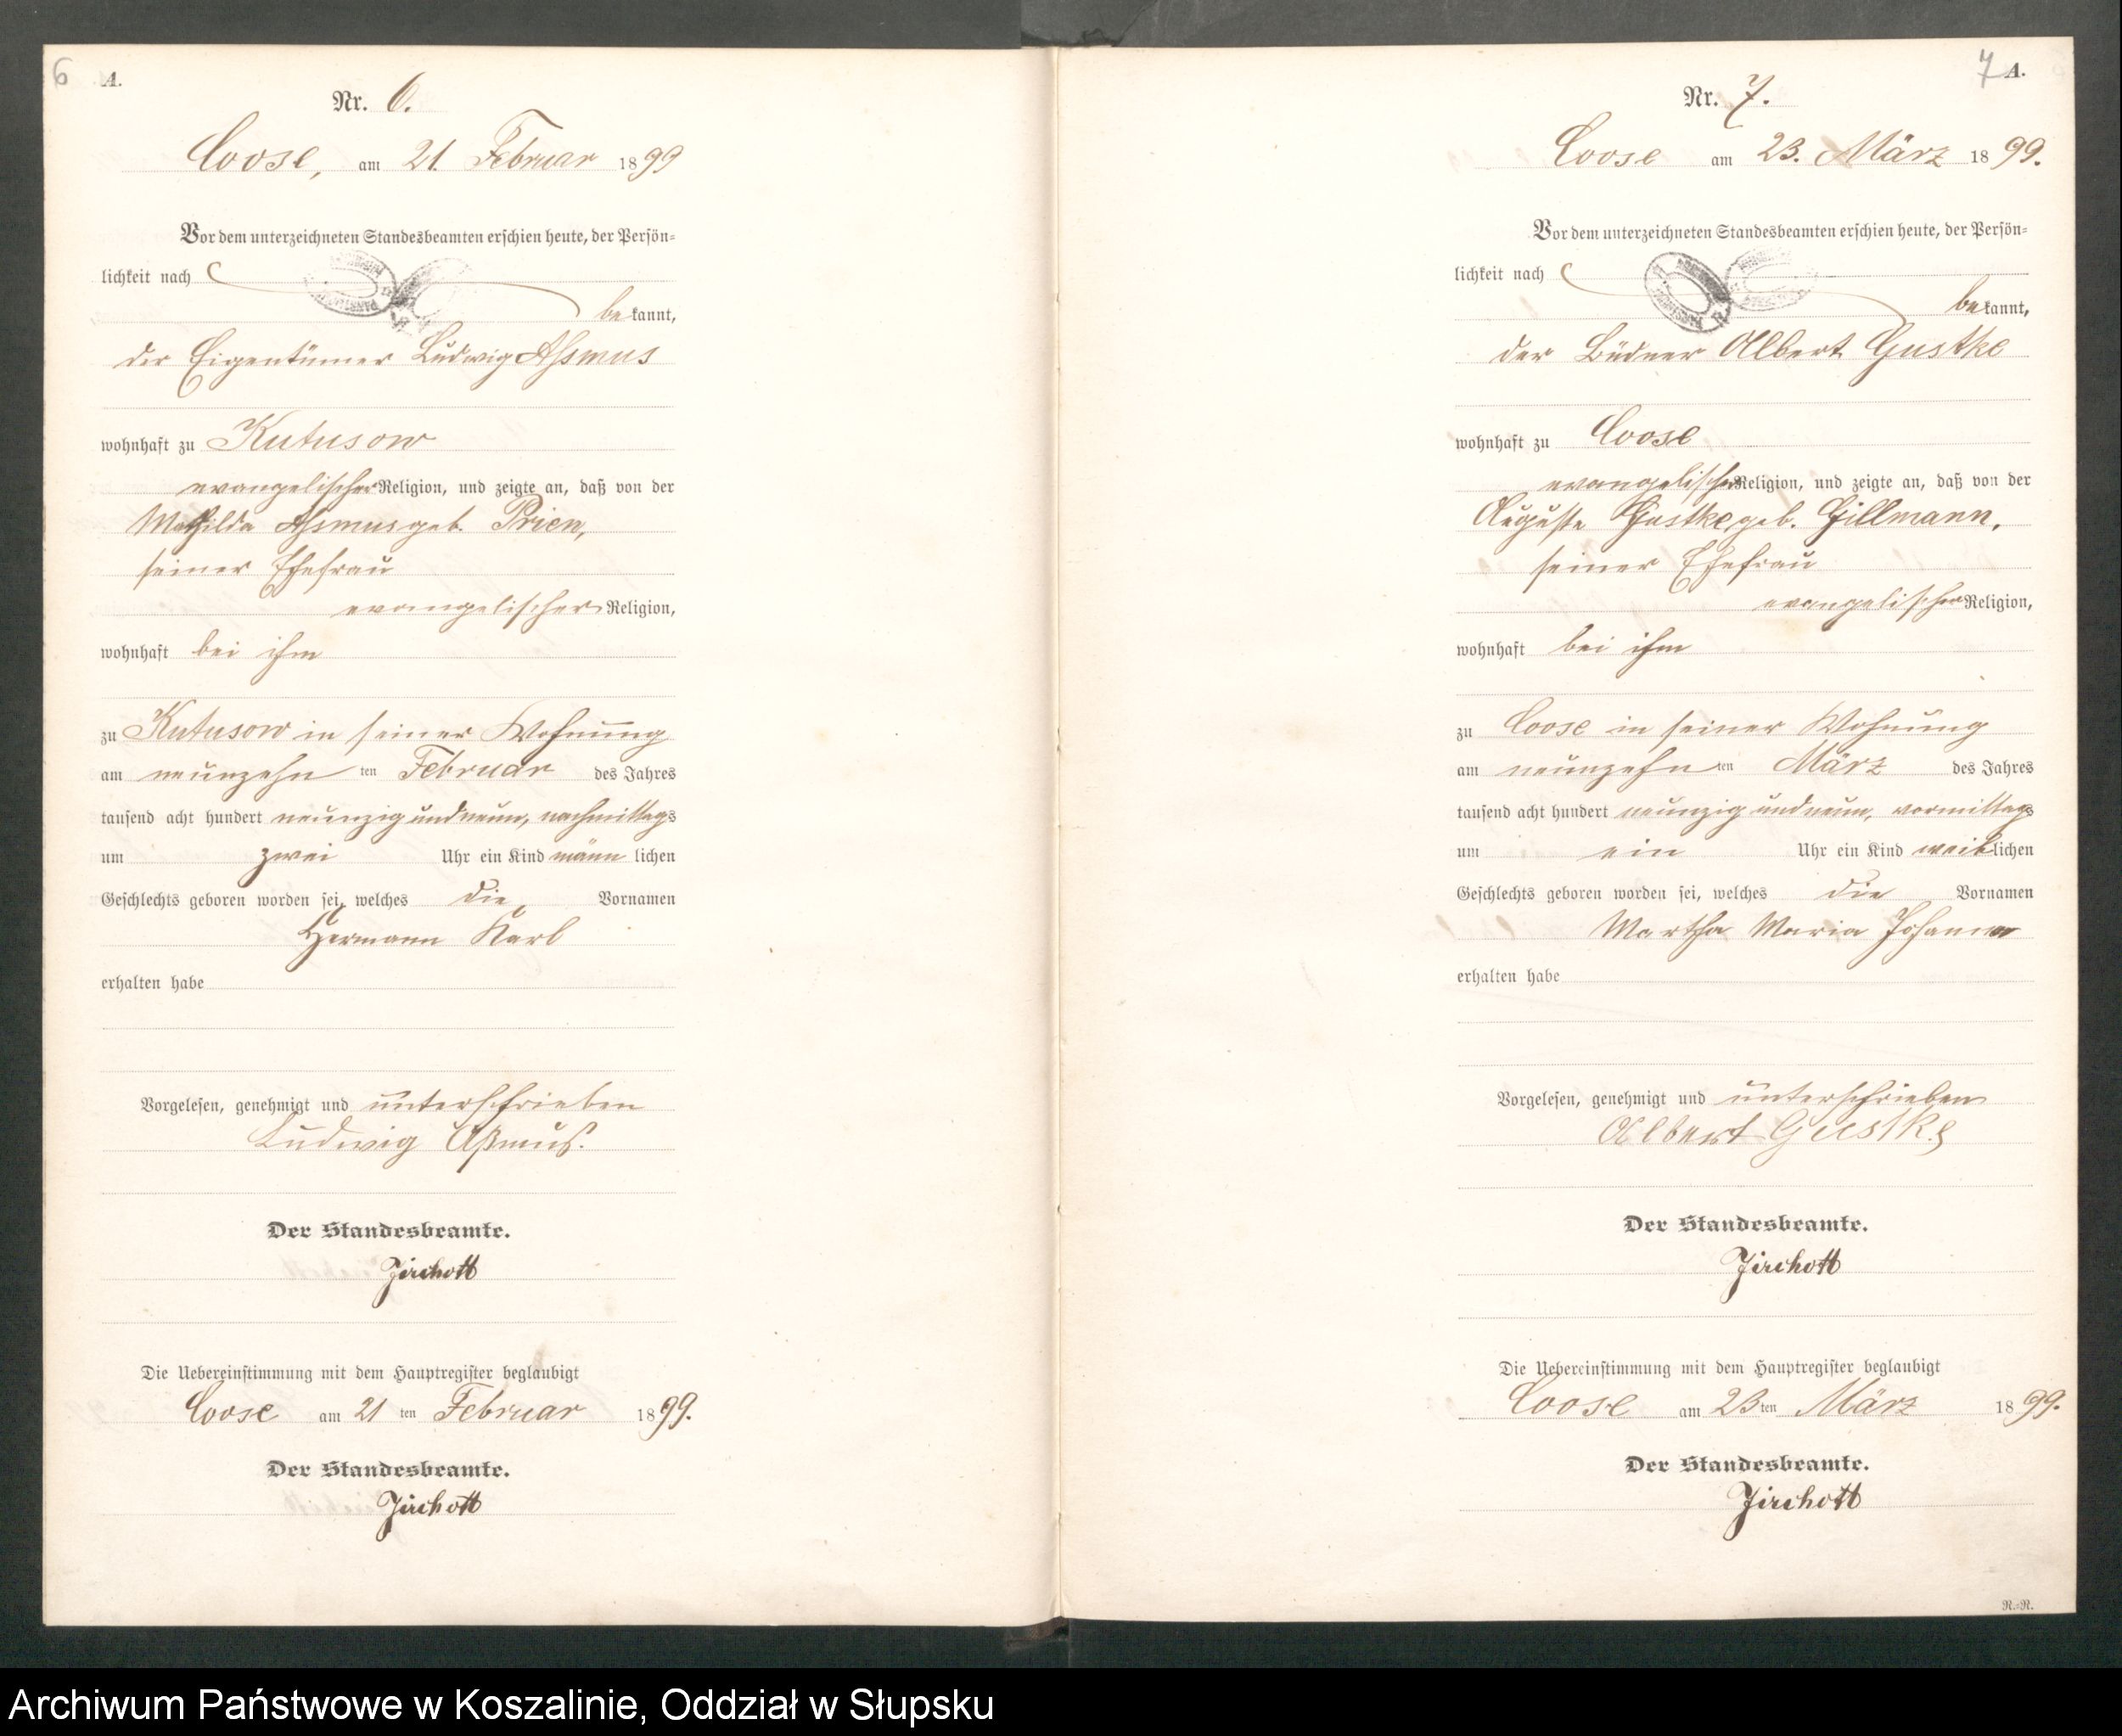 6
A.
Nr. 6.
Coose, am 21. Februar 1899
Vor dem unterzeichneten Standesbeamten erschien heute, der Persön-
lichkeit nach
bekannt,
der Eigentümer Ludwig Assmus
wohnhaft zu Kutusow
evangelischer Religion, und zeigte an, daß von der
Mathilda Assmus geb. Prien,
seiner Ehefrau
evangelischer Religion,
wohnhaft bei ihm
zu Kutusow in seiner Wohnung
am neunzehn ten Februar des Jahres
tausend acht hundert neunzig und neun, nachmittags
um zwei Uhr ein Kind männ lichen
Geschlechts geboren worden sei, welches die Vornamen
Hermann Karl
erhalten habe
Vorgelesen, genehmigt und unterschrieben
Ludwig Aßmus.
Der Standesbeamte.
Jirchott
Die Uebereinstimmung mit dem Hauptregister beglaubigt
Coose am 21 ten Februar 1899.
Der Standesbeamte.
Jirchott
7
A.
Nr. 7.
Coose am 23. März 1899.
Vor dem unterzeichneten Standesbeamten erschien heute, der Persön-
lichkeit nach
bekannt,
der Büdner Albert Gustke
wohnhaft zu Coose
evangelischer Religion, und zeigte an, daß von der
Auguste Gustke geb. Gillmann,
seiner Ehefrau
evangelischer Religion,
wohnhaft bei ihm
zu Coose in seiner Wohnung
am neunzehn ten März des Jahres
tausend acht hundert neunzig und neun, vormittags
um ein Uhr ein Kind weiblichen
Geschlechts geboren worden sei, welches die Vornamen
Martha Maria Johanna
erhalten habe
Vorgelesen, genehmigt und unterschrieben
Albert Gustke
Der Standesbeamte.
Jirchott
Die Uebereinstimmung mit dem Hauptregister beglaubigt
Coose am 23 ten März 1899.
Der Standesbeamte.
Jirchott
R.=R.
Archiwum Państwowe w Koszalinie, Oddział w Słupsku